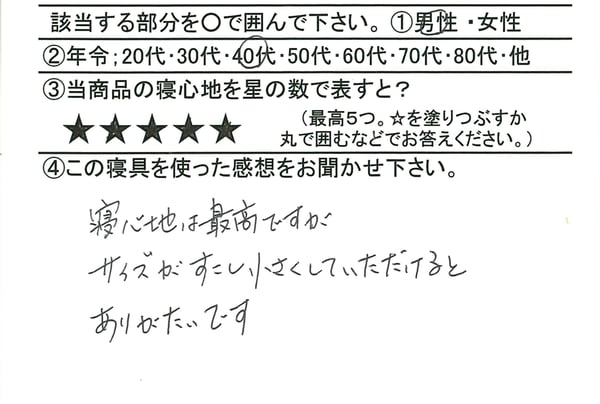 該当する部分を〇で囲んで下さい。①男性・女性
②年令;20代・30代・40代・50代・60代・70代・80代・他
③当商品の寝心地を星の数で表すと?
★★★★★ (最高5つ。☆を塗りつぶすか
丸で囲むなどでお答えください。)
④この寝具を使った感想をお聞かせ下さい。
寝心地は最高ですが
サイズがすこし小さくしていただけると
ありがたいです